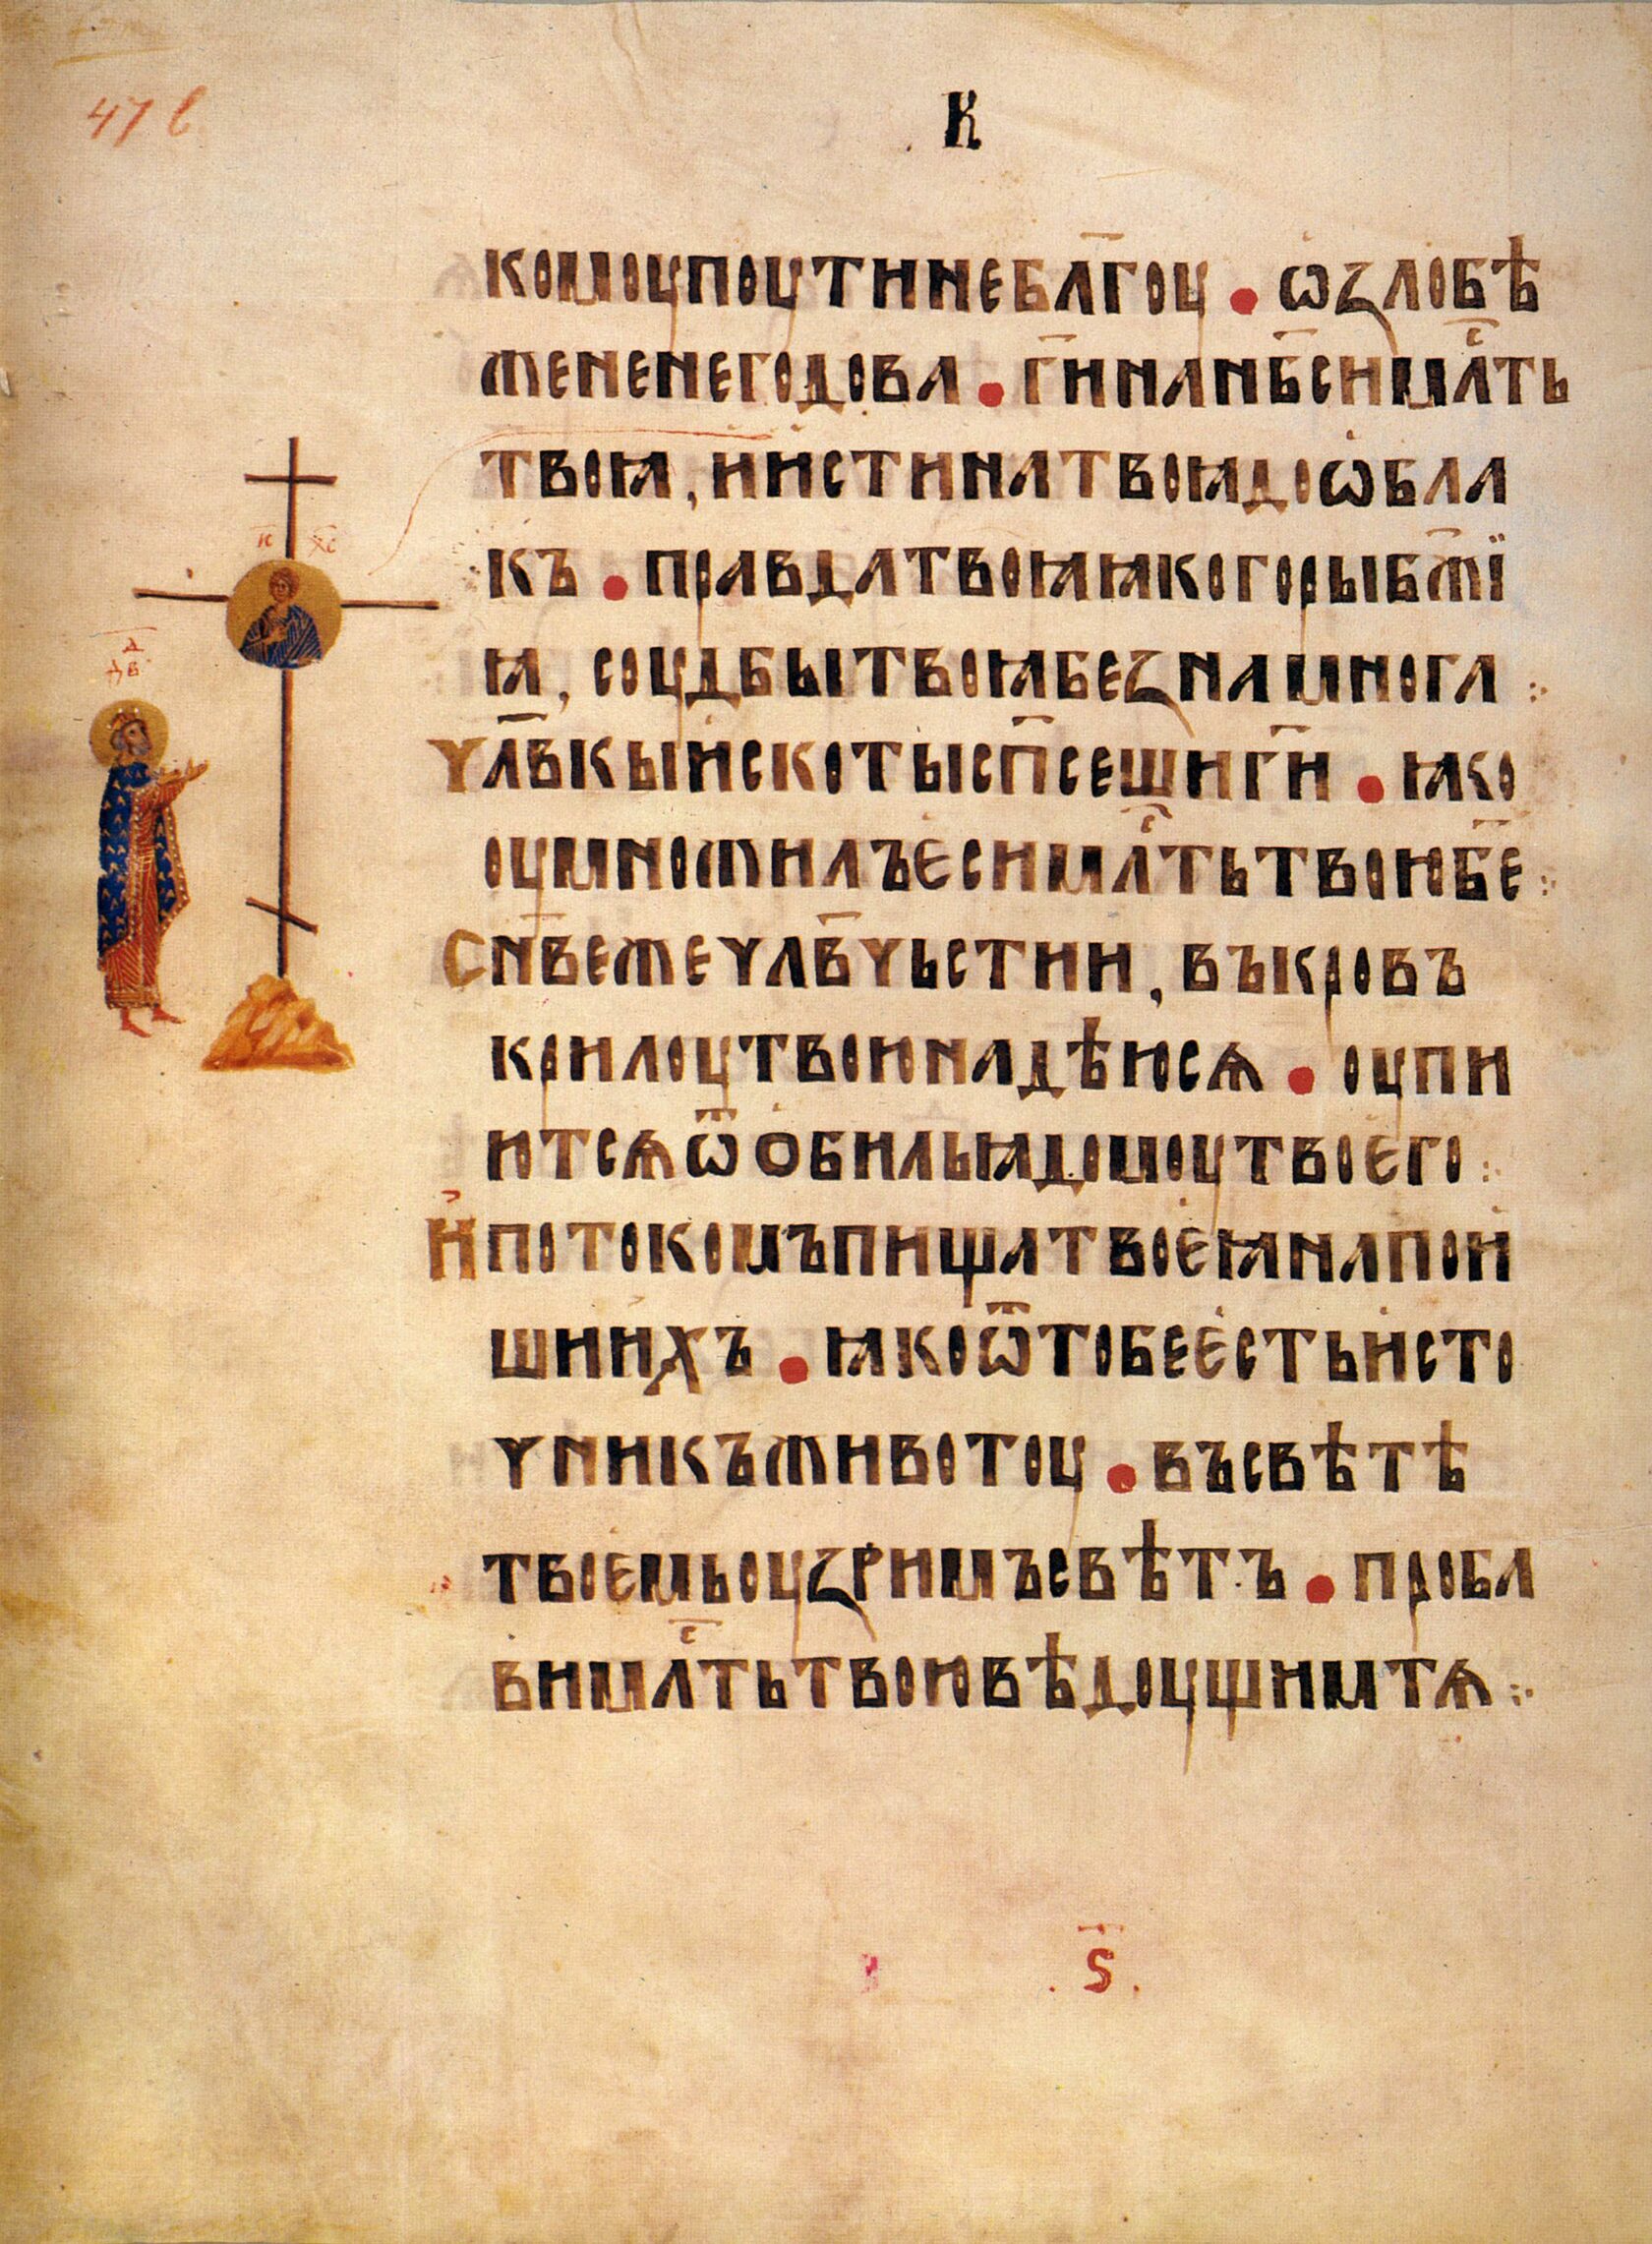 47 в
К
комоупоутинебл҃гоу • ѡзлобѣ
жененегодова • г҃инанб҃симлⷭ҇ть
твоꙗ, иистинатвоꙗдоѡбла
къ • правдатвоꙗꙗкогорыбж҃ї
ꙗ, соудбытвоꙗбезнамнога
чл҃вкыискотысп҃сешиг҃и • ꙗко
оумножилъѥсимлⷭ҇тьтвоюб҃е
сн҃вежечлв҃чьстии, въкровъ
крилоутвоюнадѣюсѧ • оупи
ютсѧѿобильꙗдомоутвоего
ипотокомъпищатвоеꙗнапои
шиихъ • ꙗкоѿтобеестьисто
чникъживотоу • въсвѣтѣ
твоемьоузримъсвѣтъ • проба
вимлⷭ҇тьтвоювѣдоущимтѧ
и҃с х҃с
дв҃д
.ѕ҃.